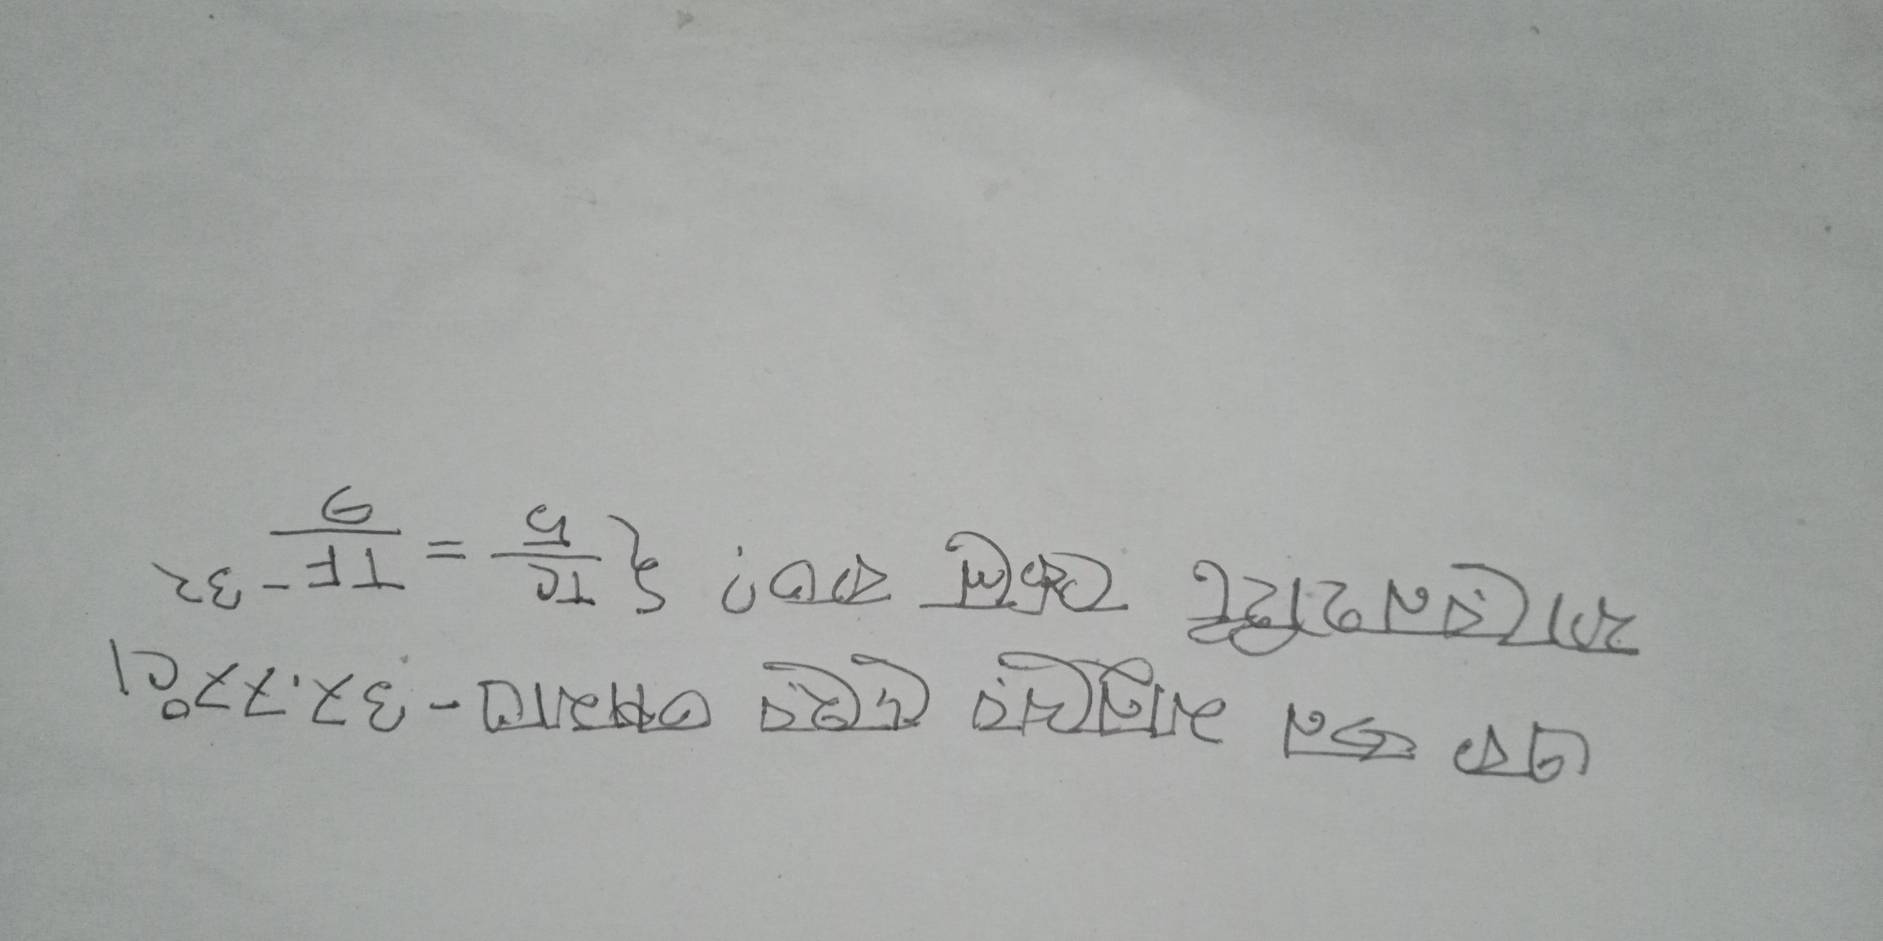 এক জন মানুষের দেহের তাপমাত্রা - 37.77°C।
ফারেনহাইট স্কেলে কত? { TC/5 = TF - 32/9